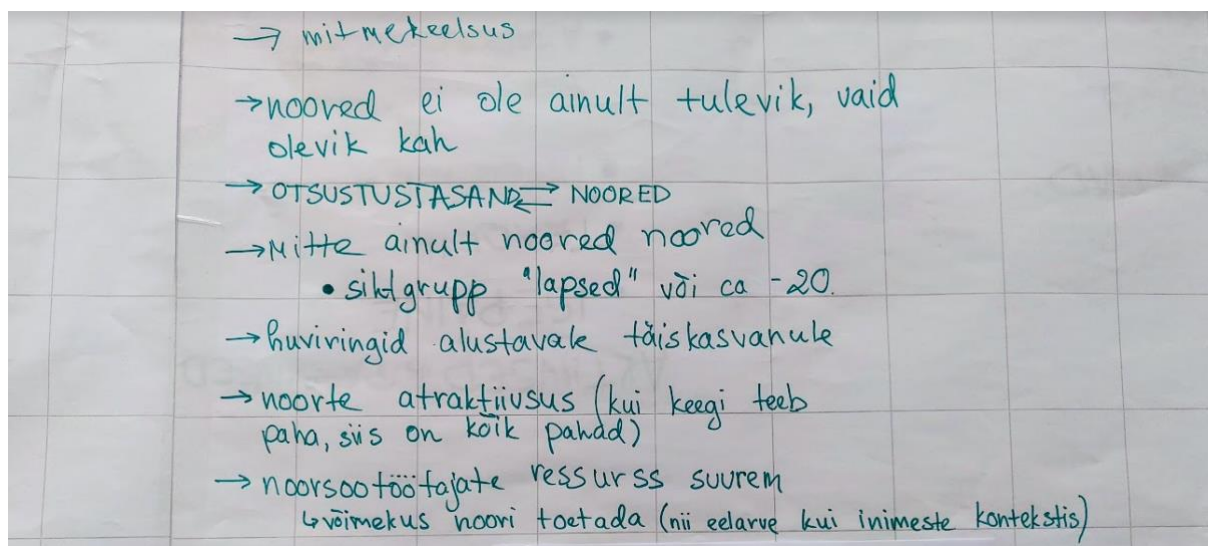 → mitmekeelsus
→ noored ei ole ainult tulevik, vaid
olevik kah
→ OTSUSTUSTASAND ⇄ NOORED
→ Mitte ainult noored noored
• sihtgrupp "lapsed" või ca -20.
→ huviringid alustavale täiskasvanule
→ noorte atraktiivsus (kui keegi teeb
paha, siis on kõik pahad)
→ noorsootöötajate ressurss suurem
↳ võimekus noori toetada (nii eelarve kui inimeste kontekstis)